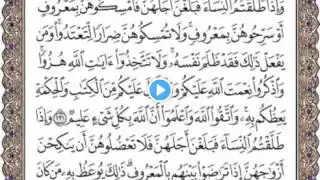 وَإِذَا طَلَّقْتُمُ النِّسَاءَ فَبَلَغْنَ أَجَلَهُنَّ فَأَمْسِكُوهُنَّ بِمَعْرُوفٍ
أَوْ سَرِّحُوهُنَّ بِمَعْرُوفٍ وَلَا تُمْسِكُوهُنَّ ضِرَارًا لِّتَعْتَدُوا۟ وَمَن
يَفْعَلْ ذَٰلِكَ فَقَدْ ظَلَمَ نَفْسَهُۥ وَلَا تَتَّخِذُوٓا۟ ءَايَٰتِ اللَّهِ هُزُوًا
وَاذْكُرُوا۟ نِعْمَتَ اللَّهِ عَلَيْكُمْ وَمَآ أَنزَلَ عَلَيْكُم مِّنَ الْكِتَٰبِ وَالْحِكْمَةِ
يَعِظُكُم بِهِۦ وَاتَّقُوا۟ اللَّهَ وَاعْلَمُوٓا۟ أَنَّ اللَّهَ بِكُلِّ شَىْءٍ عَلِيمٌ ٢٣١ وَإِذَا
طَلَّقْتُمُ النِّسَآءَ فَبَلَغْنَ أَجَلَهُنَّ فَلَا تَعْضُلُوهُنَّ أَن يَنكِحْنَ
أَزْوَٰجَهُنَّ إِذَا تَرَٰضَوْا۟ بَيْنَهُم بِالْمَعْرُوفِ ذَٰلِكَ يُوعَظُ بِهِۦ مَن كَانَ